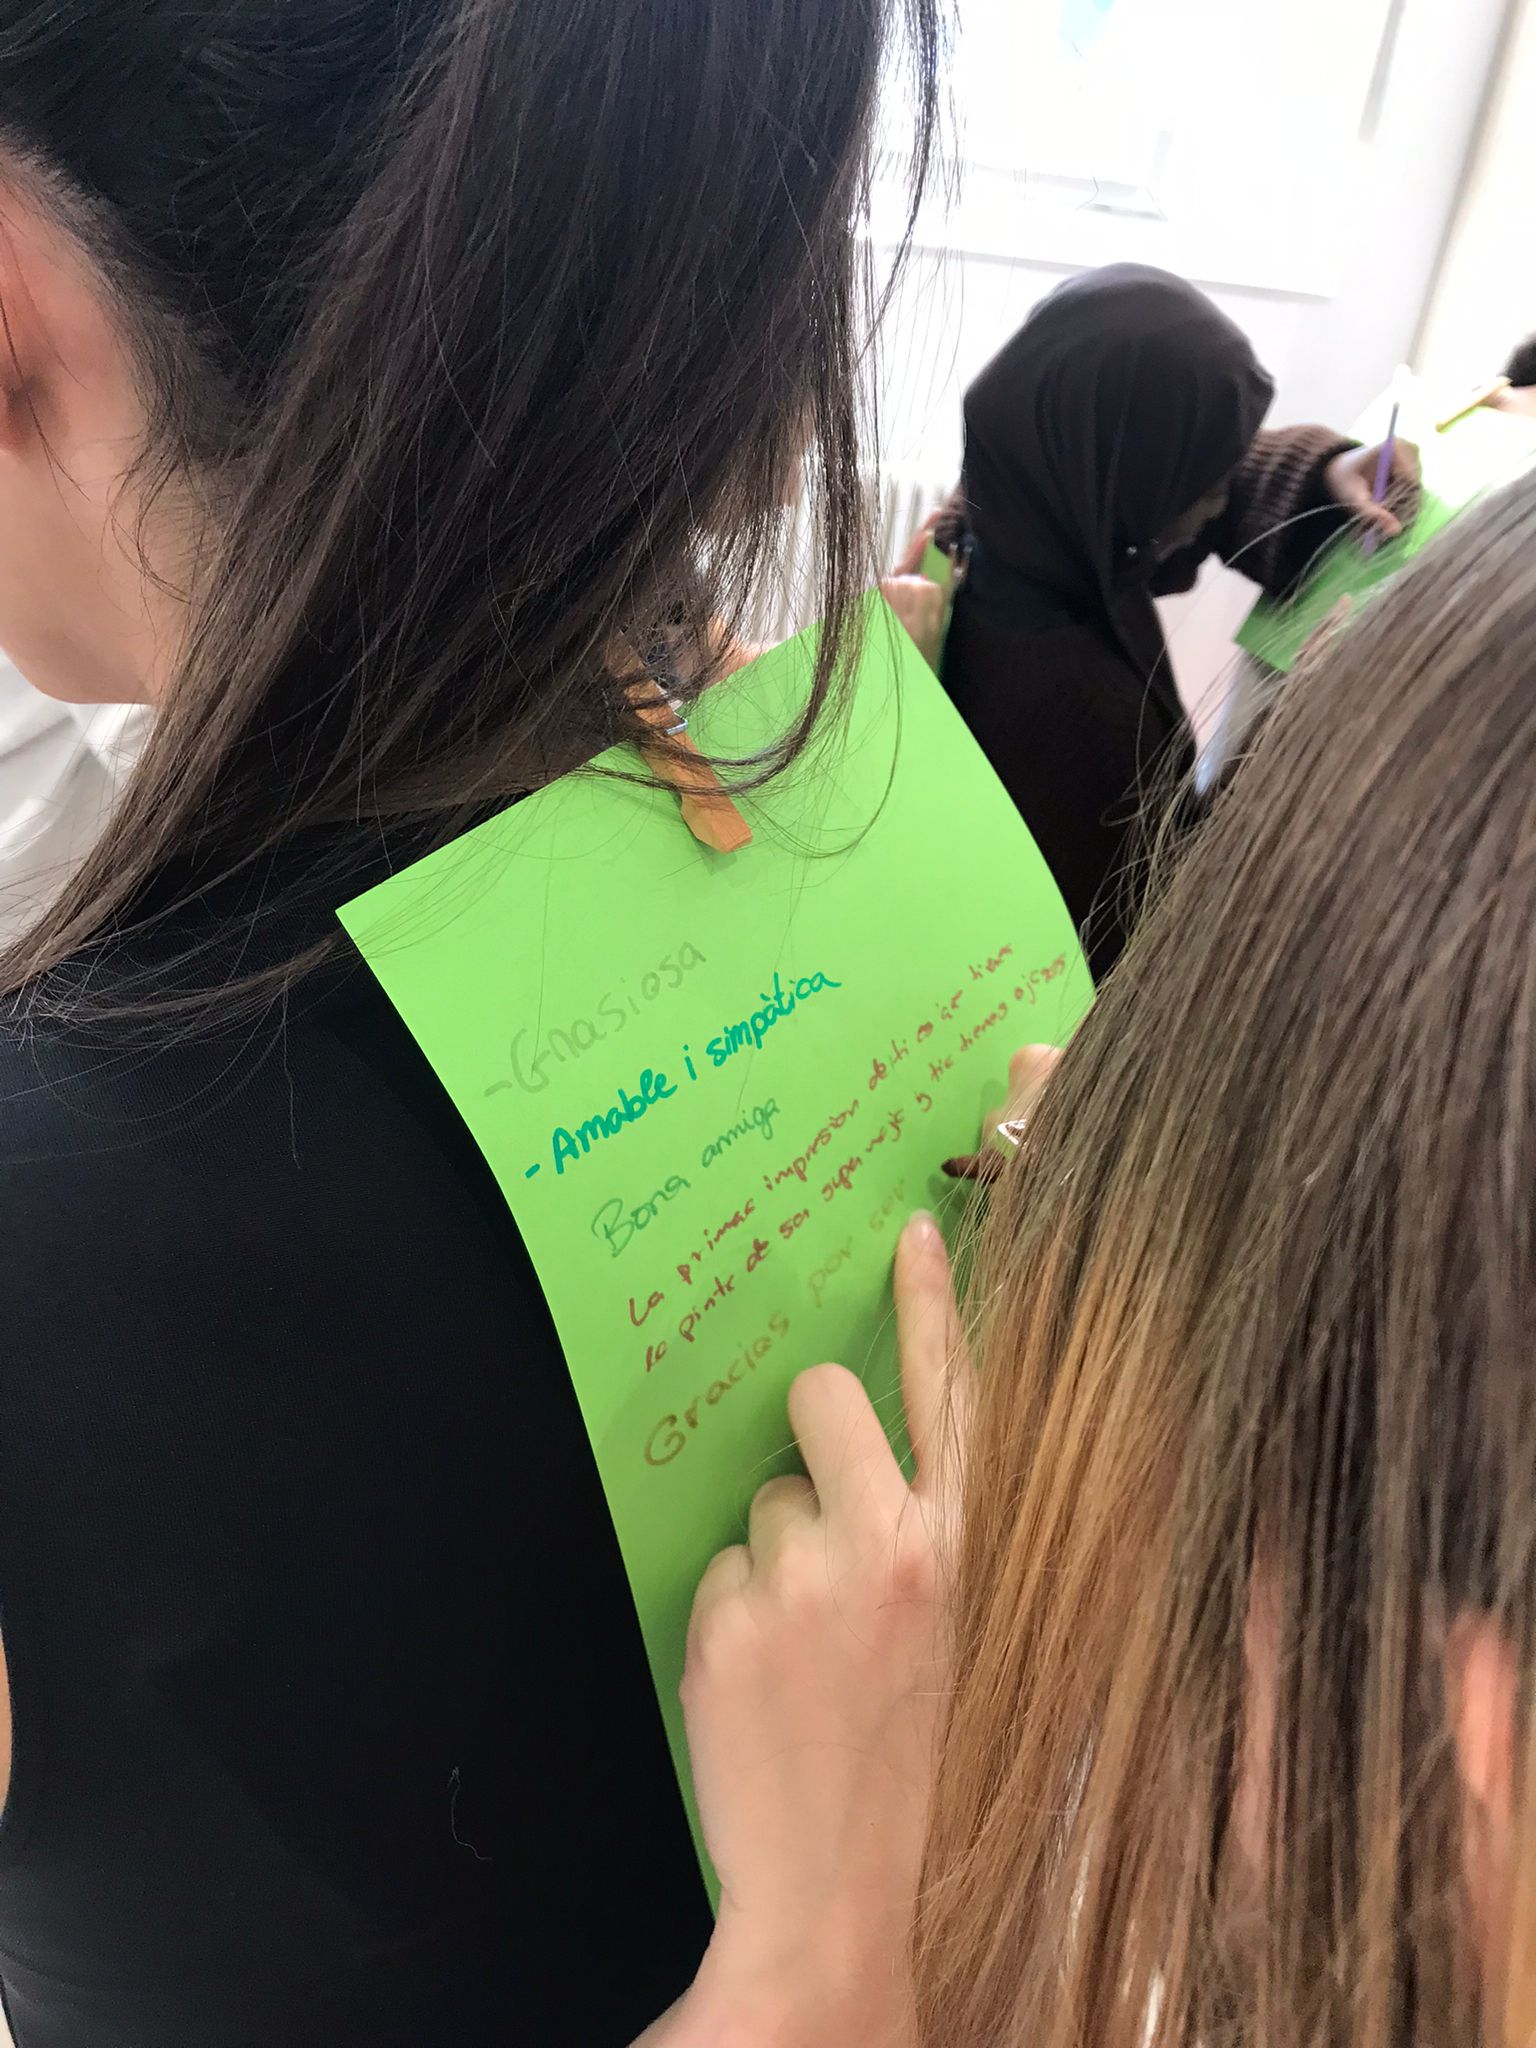 - Gnasiosa
- Amable i simpàtica
Bona amiga
La primac impresion de ti es que tienes
la pinta de ser super maja y tic tienes ojazos
Gracias por ser